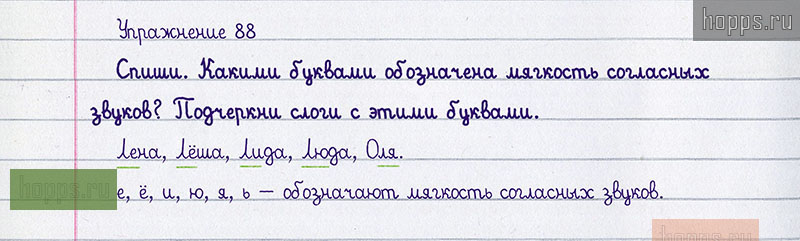 hopps.ru
Упражнение 88
Спиши. Какими буквами обозначена мягкость согласных
звуков? Подчеркни слоги с этими буквами.
Лена, Лёша, Лида, Люда, Оля.
hopps.ru
е, ё, и, ю, я, ь — обозначают мягкость согласных звуков.
hopps.ru